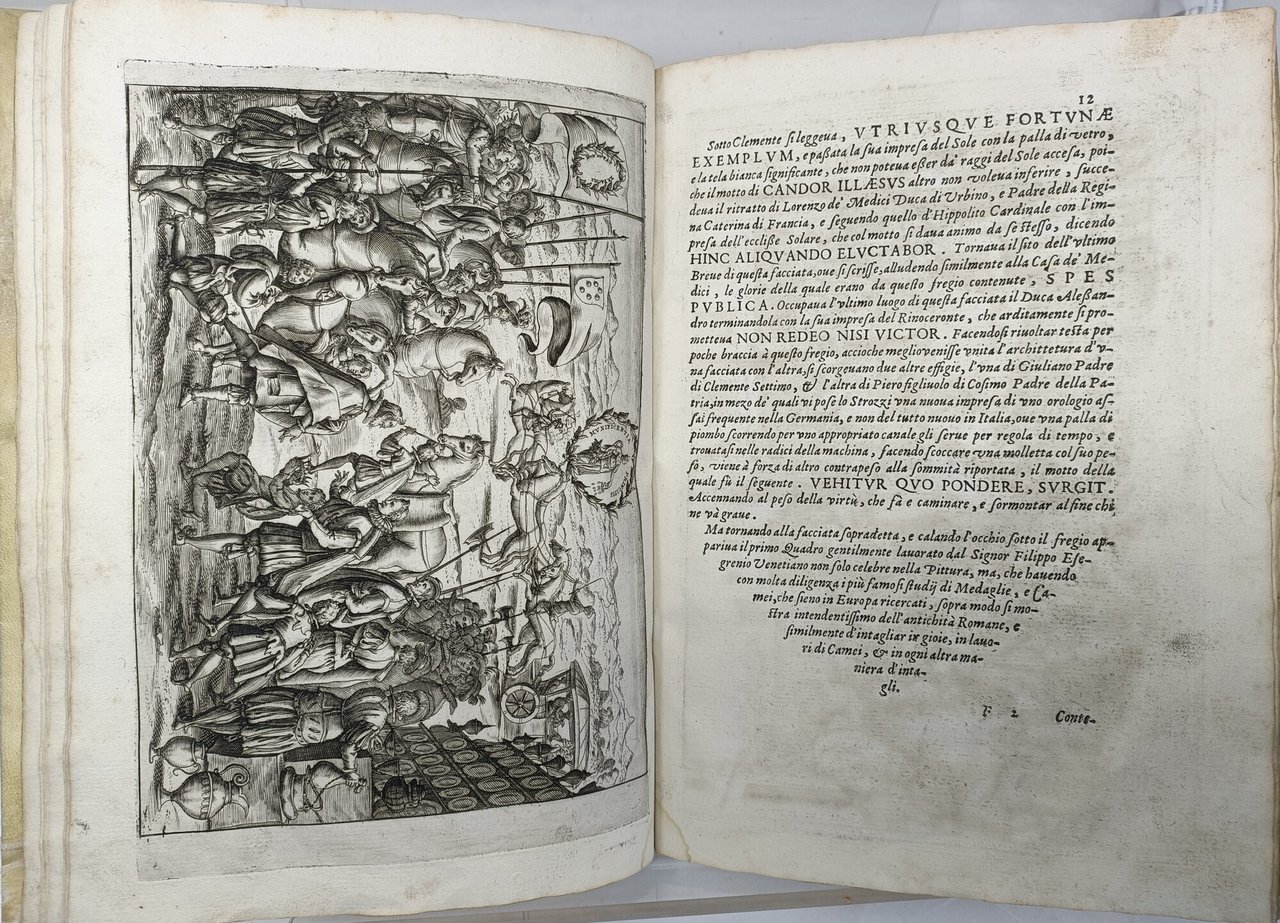 12
Sotto Clemente si leggeua, VTRIVSQVE FORTVNÆ
EXEMPLVM, e paßata la sua impresa del Sole con la palla di vetro,
e la tela bianca significante, che non poteua eßer da' raggi del Sole accesa, poi-
che il motto di CANDOR ILLÆSVS altro non voleua inferire, succe-
deua il ritratto di Lorenzo de' Medici Duca di Vrbino, e Padre della Regi-
na Caterina di Francia, e seguendo quello d'Hippolito Cardinale con l'im-
presa dell'eccliße Solare, che col motto si daua animo da se stesso, dicendo
HINC ALIQVANDO ELVCTABOR. Tornaua il sito dell'vltimo
Breue di questa facciata, oue si scrisse, alludendo similmente alla Casa de' Me-
dici, le glorie della quale erano da questo fregio contenute, SPES
PVBLICA. Occupaua l'vltimo luogo di questa facciata il Duca Aleßan-
dro terminandola con la sua impresa del Rinoceronte, che arditamente si pro-
metteua NON REDEO NISI VICTOR. Facendosi riuoltar testa per
poche braccia à questo fregio, accioche meglio venisse vnita l'architettura d'v-
na facciata con l'altra, si scorgeuano due altre effigie, l'vna di Giuliano Padre
di Clemente Settimo, & l'altra di Piero figliuolo di Cosimo Padre della Pa-
tria, in mezo de' quali vi pose lo Strozzi vna nuoua impresa di vno orologio as-
sai frequente nella Germania, e non del tutto nuouo in Italia, oue vna palla di
piombo scorrendo per vno appropriato canale gli serue per regola di tempo, e
trouatasi nelle radici della machina, facendo scoccare vna molletta col suo pe-
so, viene à forza di altro contrapeso alla sommità riportata, il motto della
quale fù il seguente. VEHITVR QVO PONDERE, SVRGIT.
Accennando al peso della virtù, che fà e caminare, e sormontar al fine chi
ne và graue.
Ma tornando alla facciata sopradetta, e calando l'occhio sotto il fregio ap-
pariua il primo Quadro gentilmente lauorato dal Signor Filippo Ese-
grenio Venetiano non solo celebre nella Pittura, ma, che hauendo
con molta diligenza i più famosi studij di Medaglie, e Ca-
mei, che sieno in Europa ricercati, sopra modo si mo-
stra intendentissimo dell'antichità Romane, e
similmente d'intagliar in gioie, in lauo-
ri di Camei, & in ogni altra ma-
niera d'inta-
gli.
F 2 Conte-